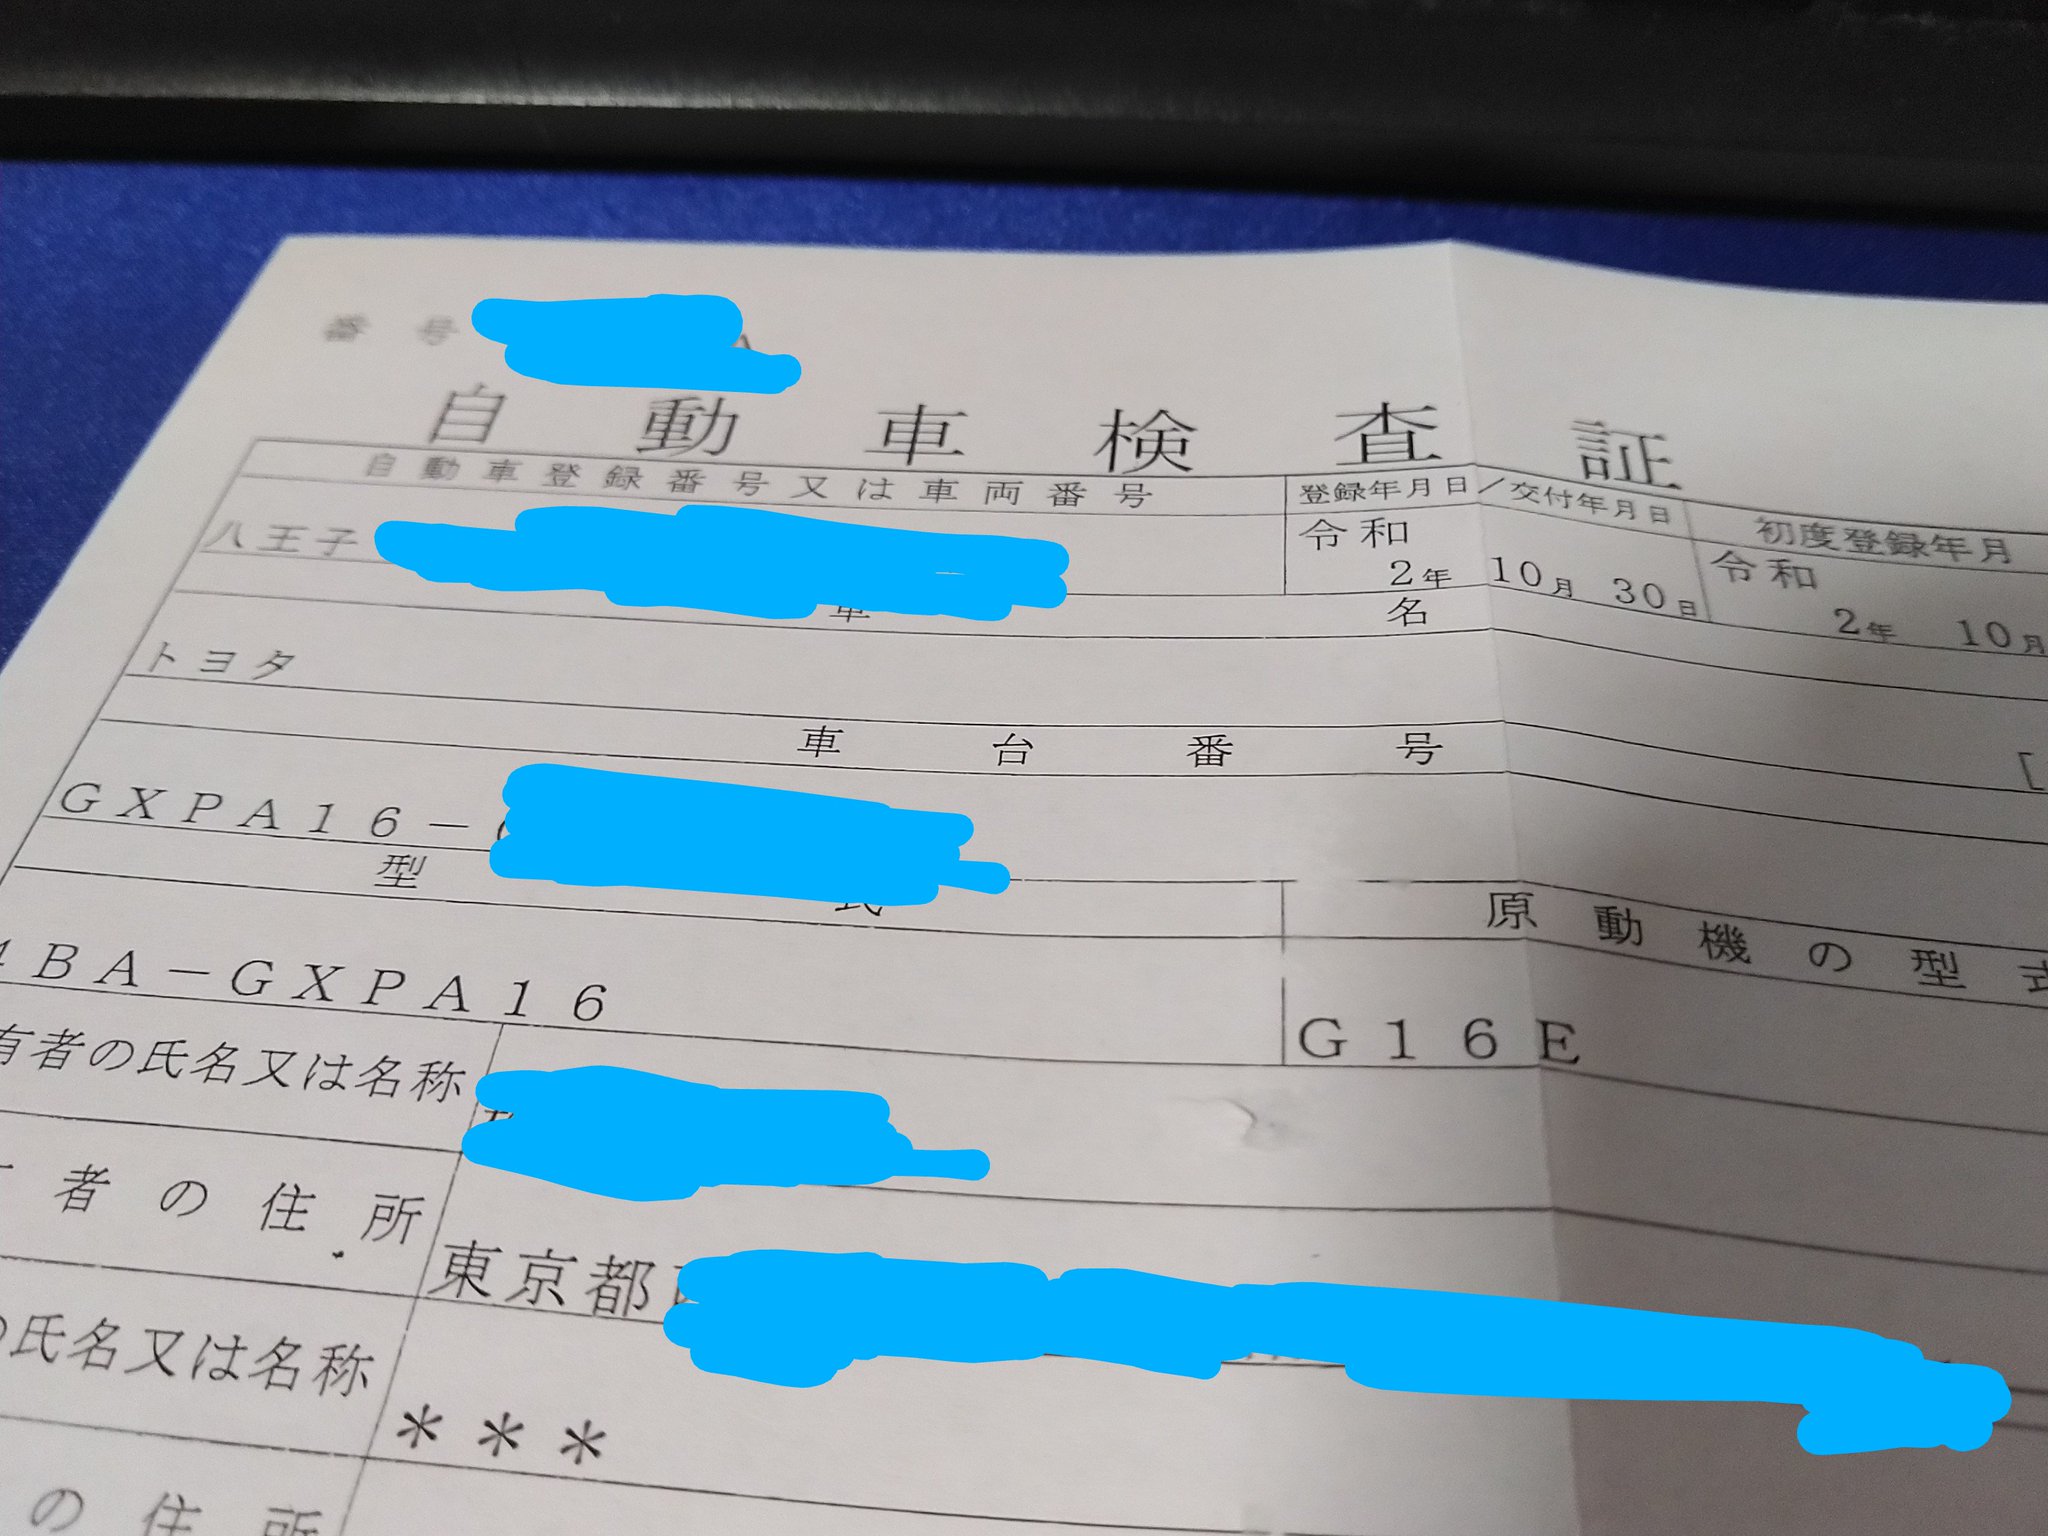 番号
自動車検査証
自動車登録番号又は車両番号 登録年月日／交付年月日 初度登録年月
八王子 令和 2年 10月 30日 令和 2年 10月
車名
トヨタ
車台番号 [
GXPA16-
型式 原動機の型式
4BA-GXPA16 G16E
有者の氏名又は名称
者の住所 東京都
の氏名又は名称 ***
の住所